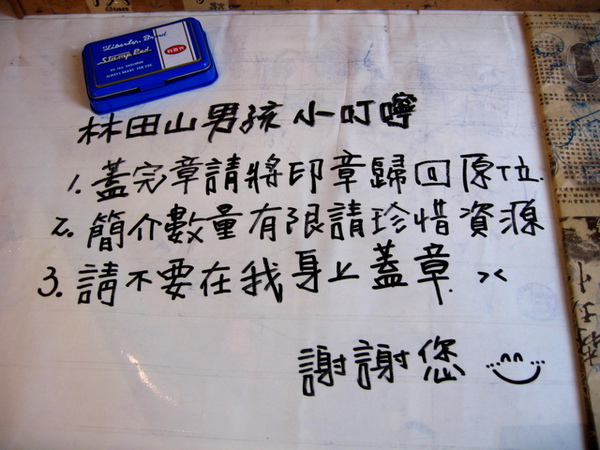 Liberty Brand
Stamp Pad
林田山男孩小叮嚀
1. 蓋完章請將印章歸回原位.
2. 簡介數量有限請珍惜資源
3. 請不要在我身上蓋章. ><
謝謝您